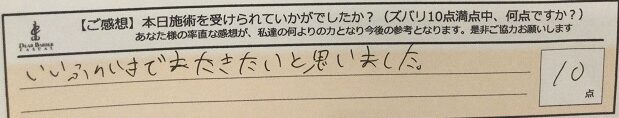 【ご感想】本日施術を受けられていかがでしたか？（ズバリ10点満点中、何点ですか？）
あなた様の率直な感想が、私達の何よりの力となり今後の参考となります。是非ご協力お願いします
DEAR BARBER
いいふんいきでまたきたいと思いました。
10
点